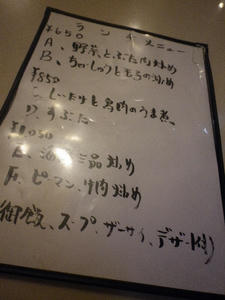 ランチメニュー
¥650
A、野菜とぶた肉炒め
B、ちゃしゅうともやし炒め
¥850
しいたけと鳥肉のうま煮
D、すぶた
¥1050
E、海鮮三品炒め
F、ピーマン、牛肉炒め
御飯、スープ、ザーサイ、デザート付